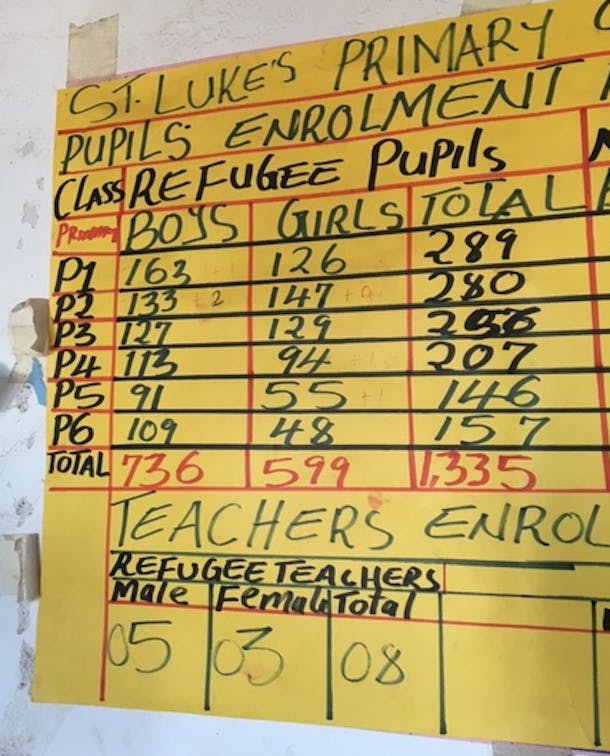 ST. LUKE'S PRIMARY
PUPILS ENROLMENT
CLASS REFUGEE Pupils
PRIMARY BOYS GIRLS TOTAL
P1 163 +1 126 289
P2 133 2 147 280
P3 127 129 256
P4 113 94 +1 207
P5 91 55 +1 146
P6 109 48 157
TOTAL 736 599 1,335
TEACHERS ENROL
REFUGEE TEACHERS
Male Female Total
05 03 08